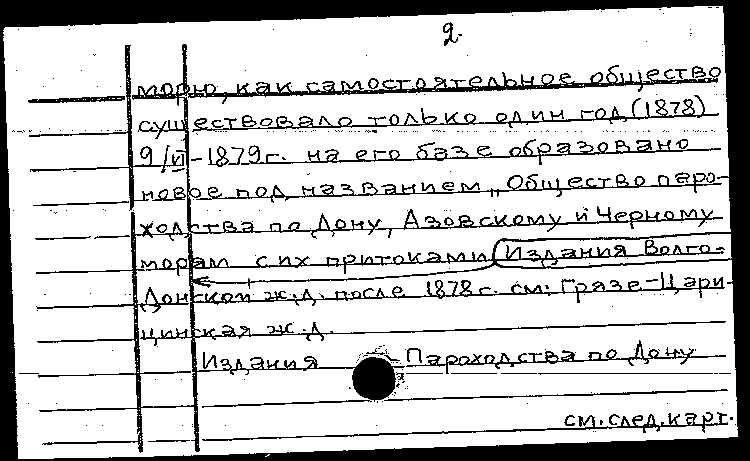 2.
морю, как самостоятельное общество
существовало только один год (1878)
9/VI-1879г. на его базе образовано
новое под названием „Общество паро-
ходства по Дону, Азовскому и Черному
морям с их притоками Издания Волго-
Донской ж.д. после 1878г. см: Грязе-Цари-
цинская ж.д.
Издания Пароходства по Дону
см. след. карт.